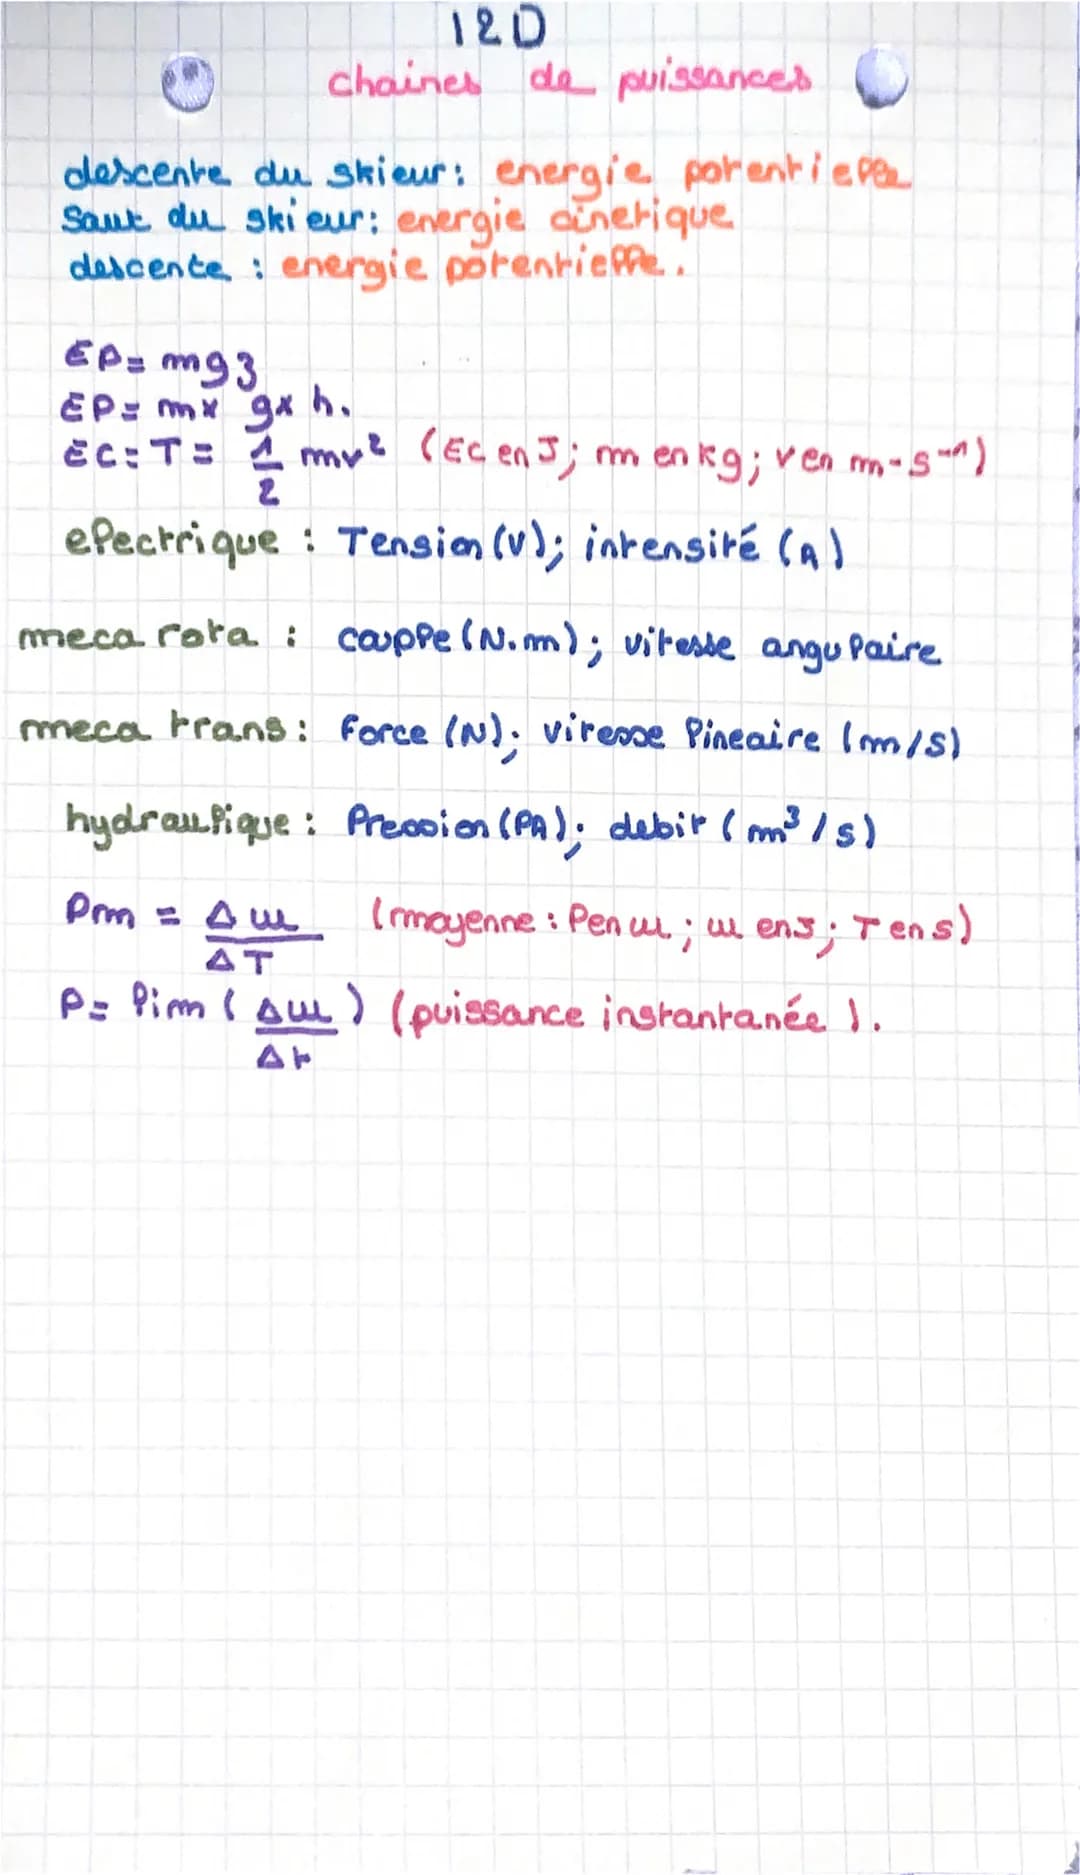 I2D
chaines de puissances
descente du skieur: energie potentielle
Saut du skieur: energie cinetique
descente : energie potentielle.
EP= mgz
EP= m x g x h.
EC=T= 1/2 mv² (EC en J; m en kg; v en m-s⁻¹)
electrique : Tension (V); intensité (A)
meca rota : couple (N.m); vitesse angulaire
meca trans: Force (N); vitesse lineaire (m/s)
hydraulique : Pression (PA); debit (m³/s)
Pm = ΔW/ΔT (moyenne : P en W; W en J; T en s)
P= lim (ΔW/Δt) (puissance instantanée).